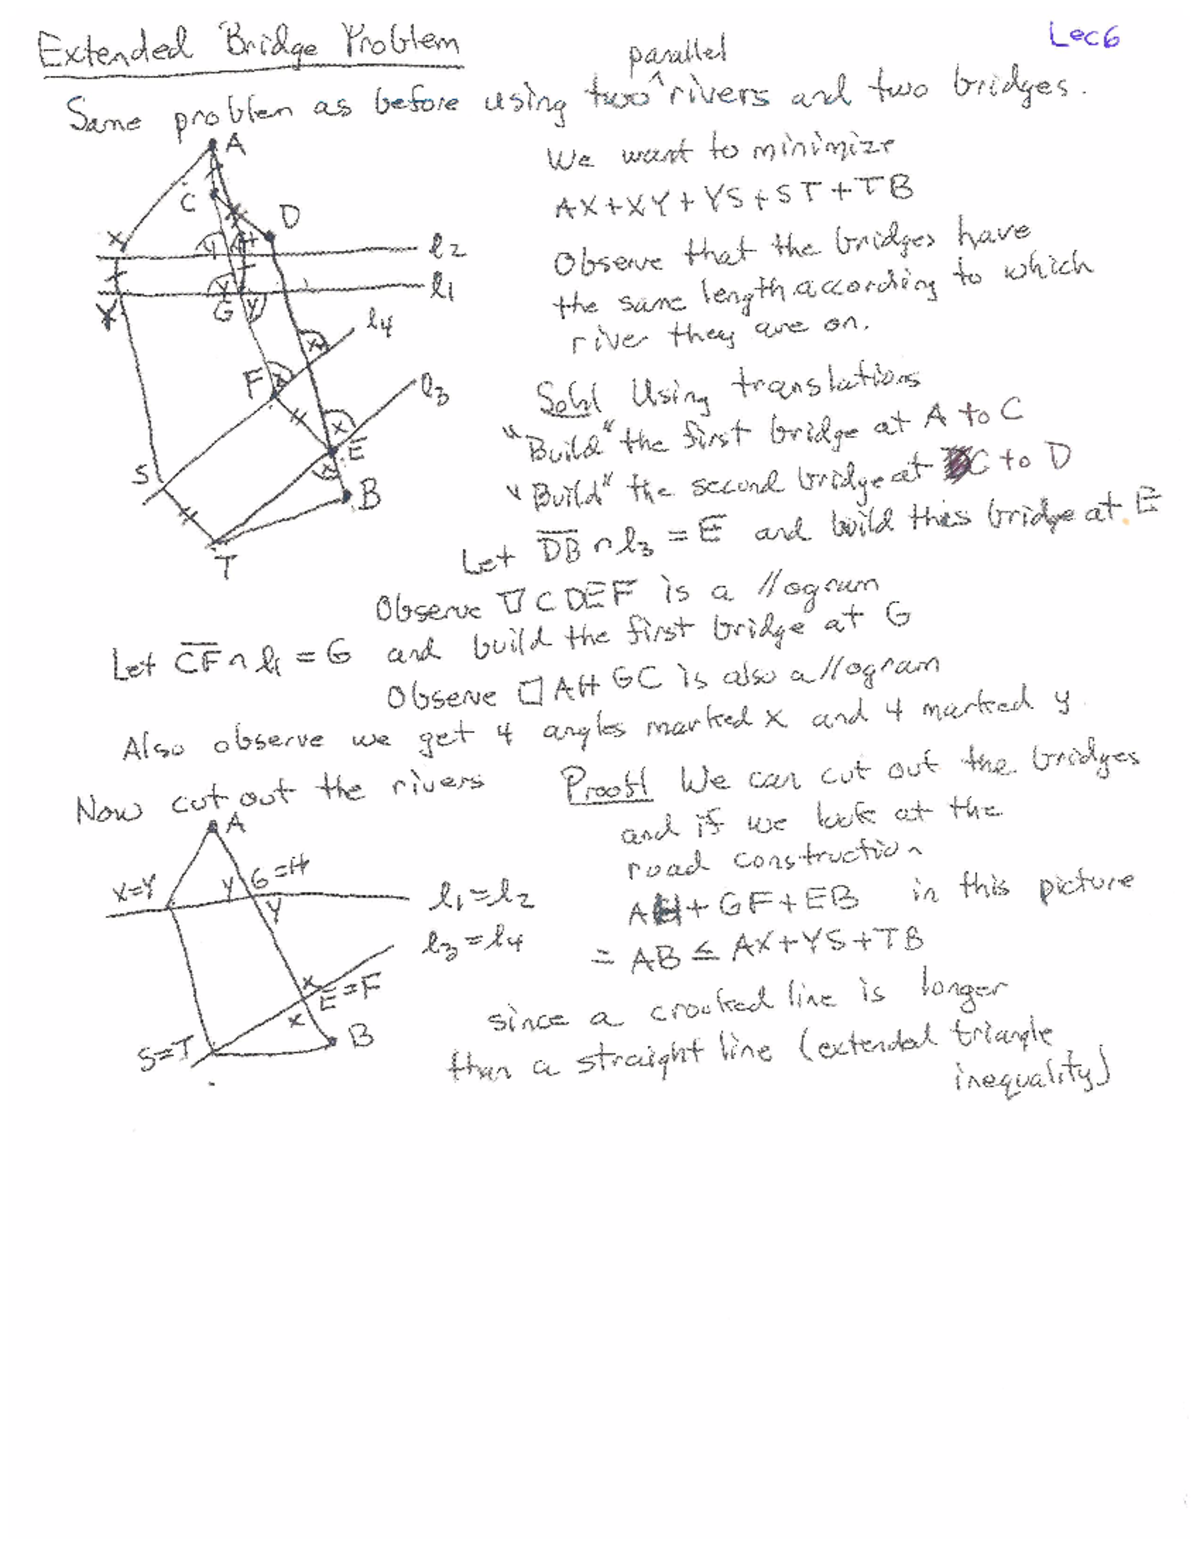 Lec6
Extended Bridge Problem
parallel
Same problem as before using two ^ rivers and two bridges.
A
C
D
X
H
l2
Y
G
l1
l4
F
l3
E
S
B
T
We want to minimize
AX+XY+YS+ST+TB
Observe that the bridges have
the same length according to which
river they are on.
Soln/ Using translations
"Build" the first bridge at A to C
"Build" the second bridge at C to D
Let DB ∩ l3 = E and build this bridge at E
Observe ▱ CDEF is a //ogram
Let CF ∩ l1 = G and build the first bridge at G
Observe ▱ AHGC is also a //ogram
Also observe we get 4 angles marked x and 4 marked y.
Now cut out the rivers
A
X=Y
y
G=H
y
l1=l2
l3=l4
x
E=F
x
S=T
B
Proof/ We can cut out the bridges
and if we look at the
road construction
AH+GF+EB in this picture
= AB ≤ AX+YS+TB
since a crooked line is longer
than a straight line (extended triangle
inequality)